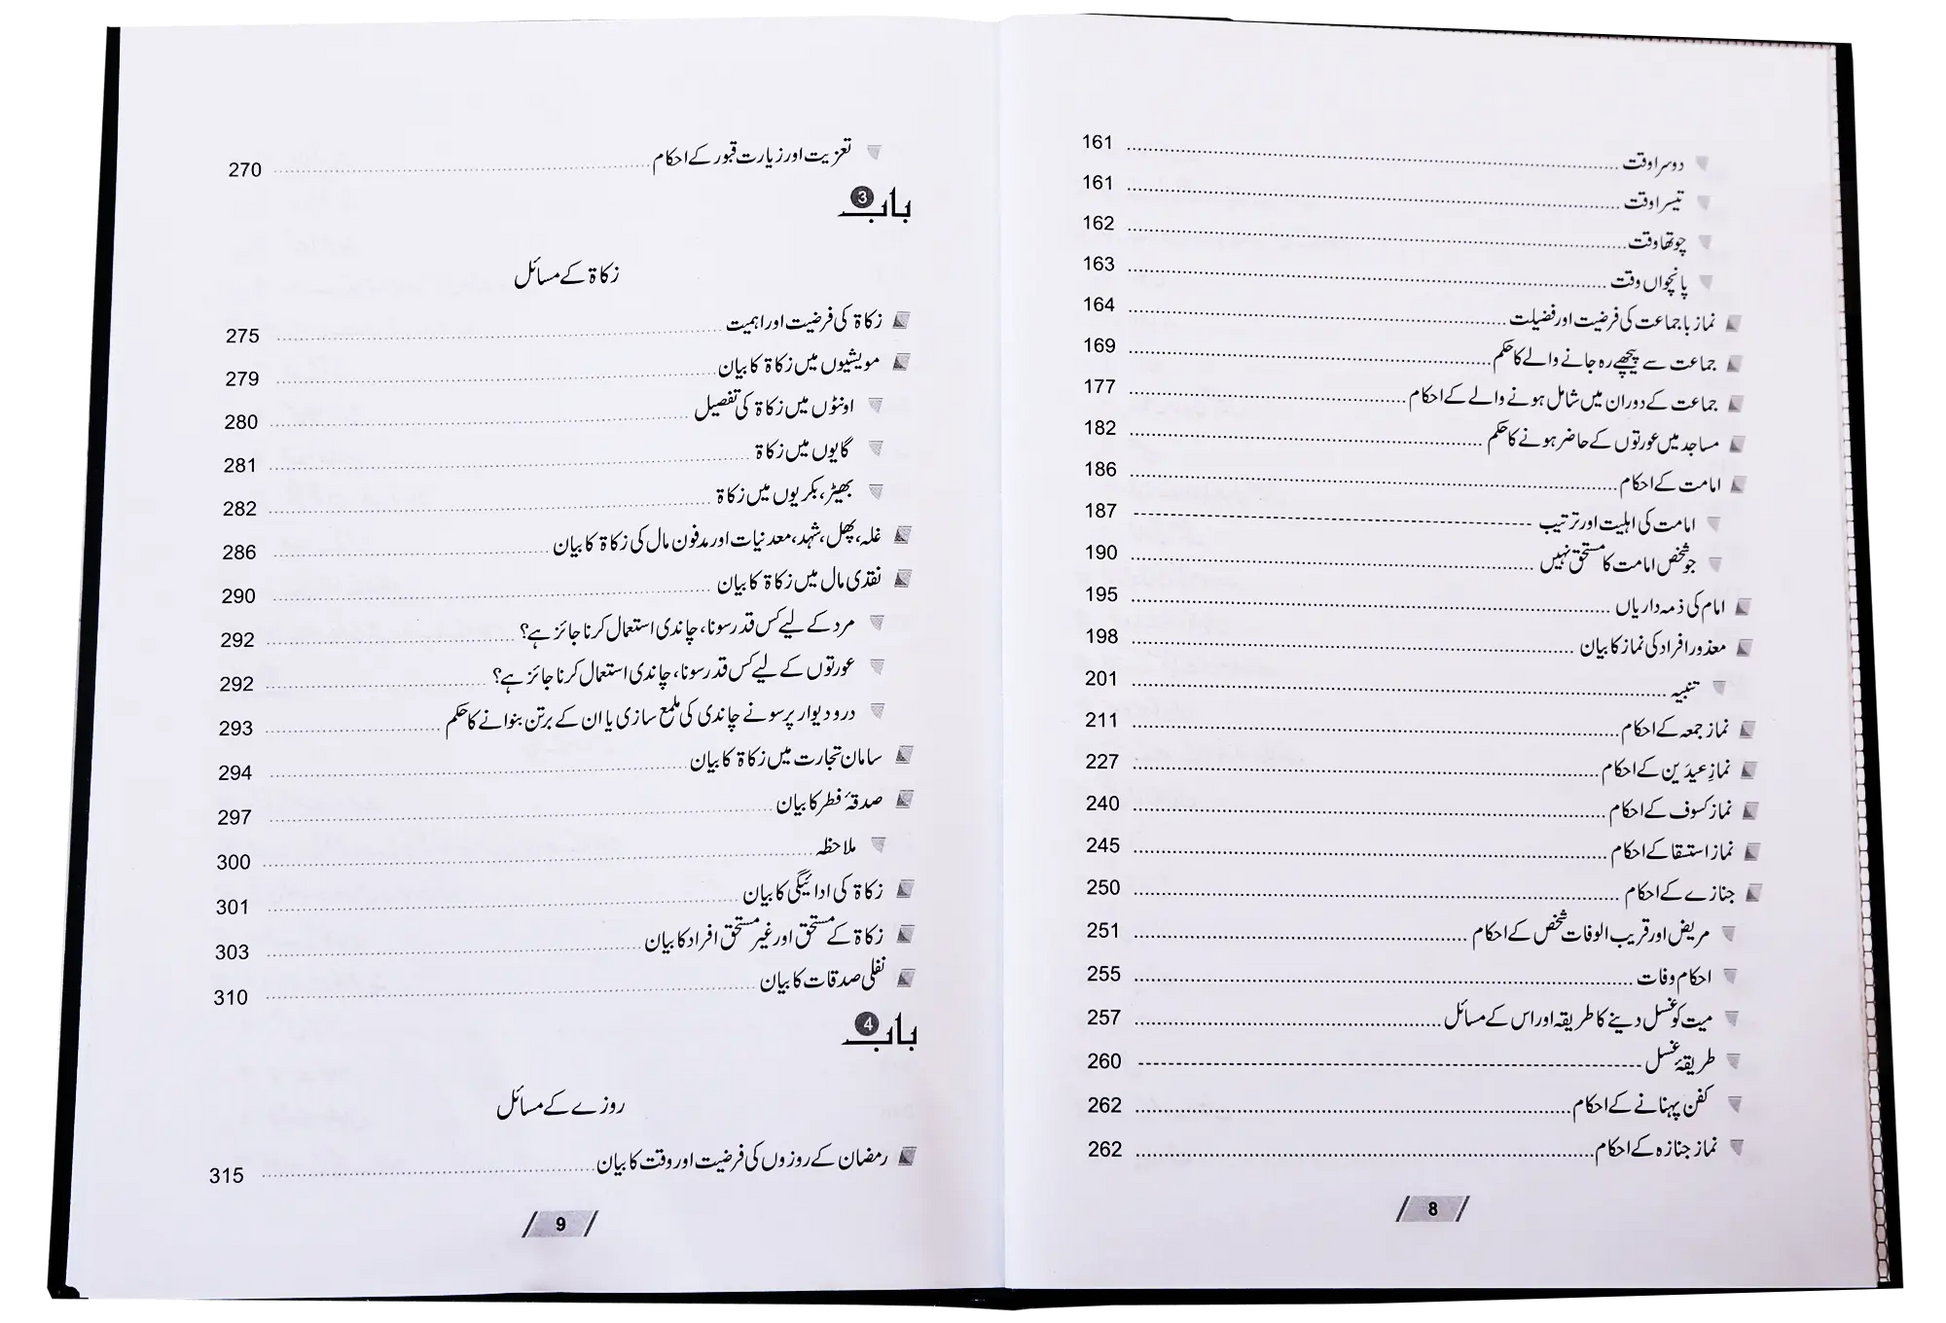 دوسرا وقت 161
تیسرا وقت 161
چوتھا وقت 162
پانچواں وقت 163
نماز با جماعت کی فرضیت اور فضیلت 164
جماعت سے پیچھے رہ جانے والے کا حکم 169
جماعت کے دوران میں شامل ہونے والے کے احکام 177
مساجد میں عورتوں کے حاضر ہونے کا حکم 182
امامت کے احکام 186
امامت کی اہلیت اور ترتیب 187
جو شخص امامت کا مستحق نہیں 190
امام کی ذمہ داریاں 195
معذور افراد کی نماز کا بیان 198
تنبیہ 201
نماز جمعہ کے احکام 211
نمازِ عیدَین کے احکام 227
نماز کسوف کے احکام 240
نماز استسقا کے احکام 245
جنازے کے احکام 250
مریض اور قریب الوفات شخص کے احکام 251
احکام وفات 255
میت کو غسل دینے کا طریقہ اور اس کے مسائل 257
طریقۂ غسل 260
کفن پہنانے کے احکام 262
نماز جنازہ کے احکام 262
8
تعزیت اور زیارت قبور کے احکام 270
باب 3
زکاۃ کے مسائل
زکاۃ کی فرضیت اور اہمیت 275
مویشیوں میں زکاۃ کا بیان 279
اونٹوں میں زکاۃ کی تفصیل 280
گایوں میں زکاۃ 281
بھیڑ، بکریوں میں زکاۃ 282
غلہ، پھل، شہد، معدنیات اور مدفون مال کی زکاۃ کا بیان 286
نقدی مال میں زکاۃ کا بیان 290
مرد کے لیے کس قدر سونا، چاندی استعمال کرنا جائز ہے؟ 292
عورتوں کے لیے کس قدر سونا، چاندی استعمال کرنا جائز ہے؟ 292
در و دیوار پر سونے چاندی کی ملمع سازی یا ان کے برتن بنوانے کا حکم 293
سامان تجارت میں زکاۃ کا بیان 294
صدقۂ فطر کا بیان 297
ملاحظہ 300
زکاۃ کی ادائیگی کا بیان 301
زکاۃ کے مستحق اور غیر مستحق افراد کا بیان 303
نفلی صدقات کا بیان 310
باب 4
روزے کے مسائل
رمضان کے روزوں کی فرضیت اور وقت کا بیان 315
9